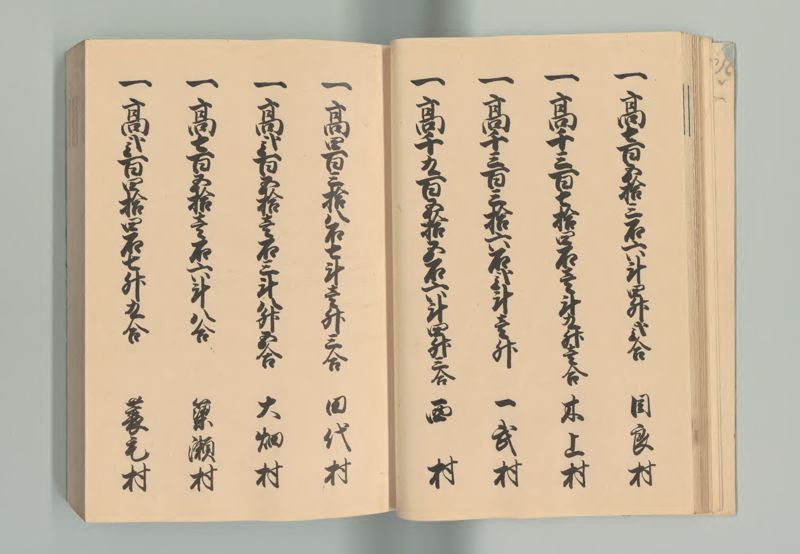 一高七百五拾三石六斗四升弐合 間良村
一高千三百七拾四石壱斗九升壱合 木上村
一高千三百三拾六石弐斗壱升 一武村
一高千九百五拾五石六斗四升三合 西 村
一高四百三拾八石七斗壱升三合 田代村
一高弐百五拾壱石三斗八升五合 大畑村
一高七百五拾壱石六斗八合 簗瀬村
一高弐百四拾四石七升九合 蓑毛村